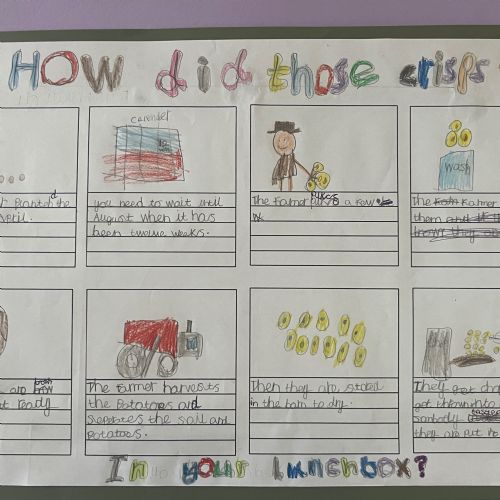 How did those crisps
planted the
April.
calender
you need to wait until
August when it has
been twelve weeks.
The Farmer picks a few
The Farmer
them
wash
are
ready
The Farmer harvests
the Potatoes and
seperates the soil and
potatoes.
Then they are stored
in the barn to dry.
They get
get thrown into
somebody
they are put
In your lunchbox?